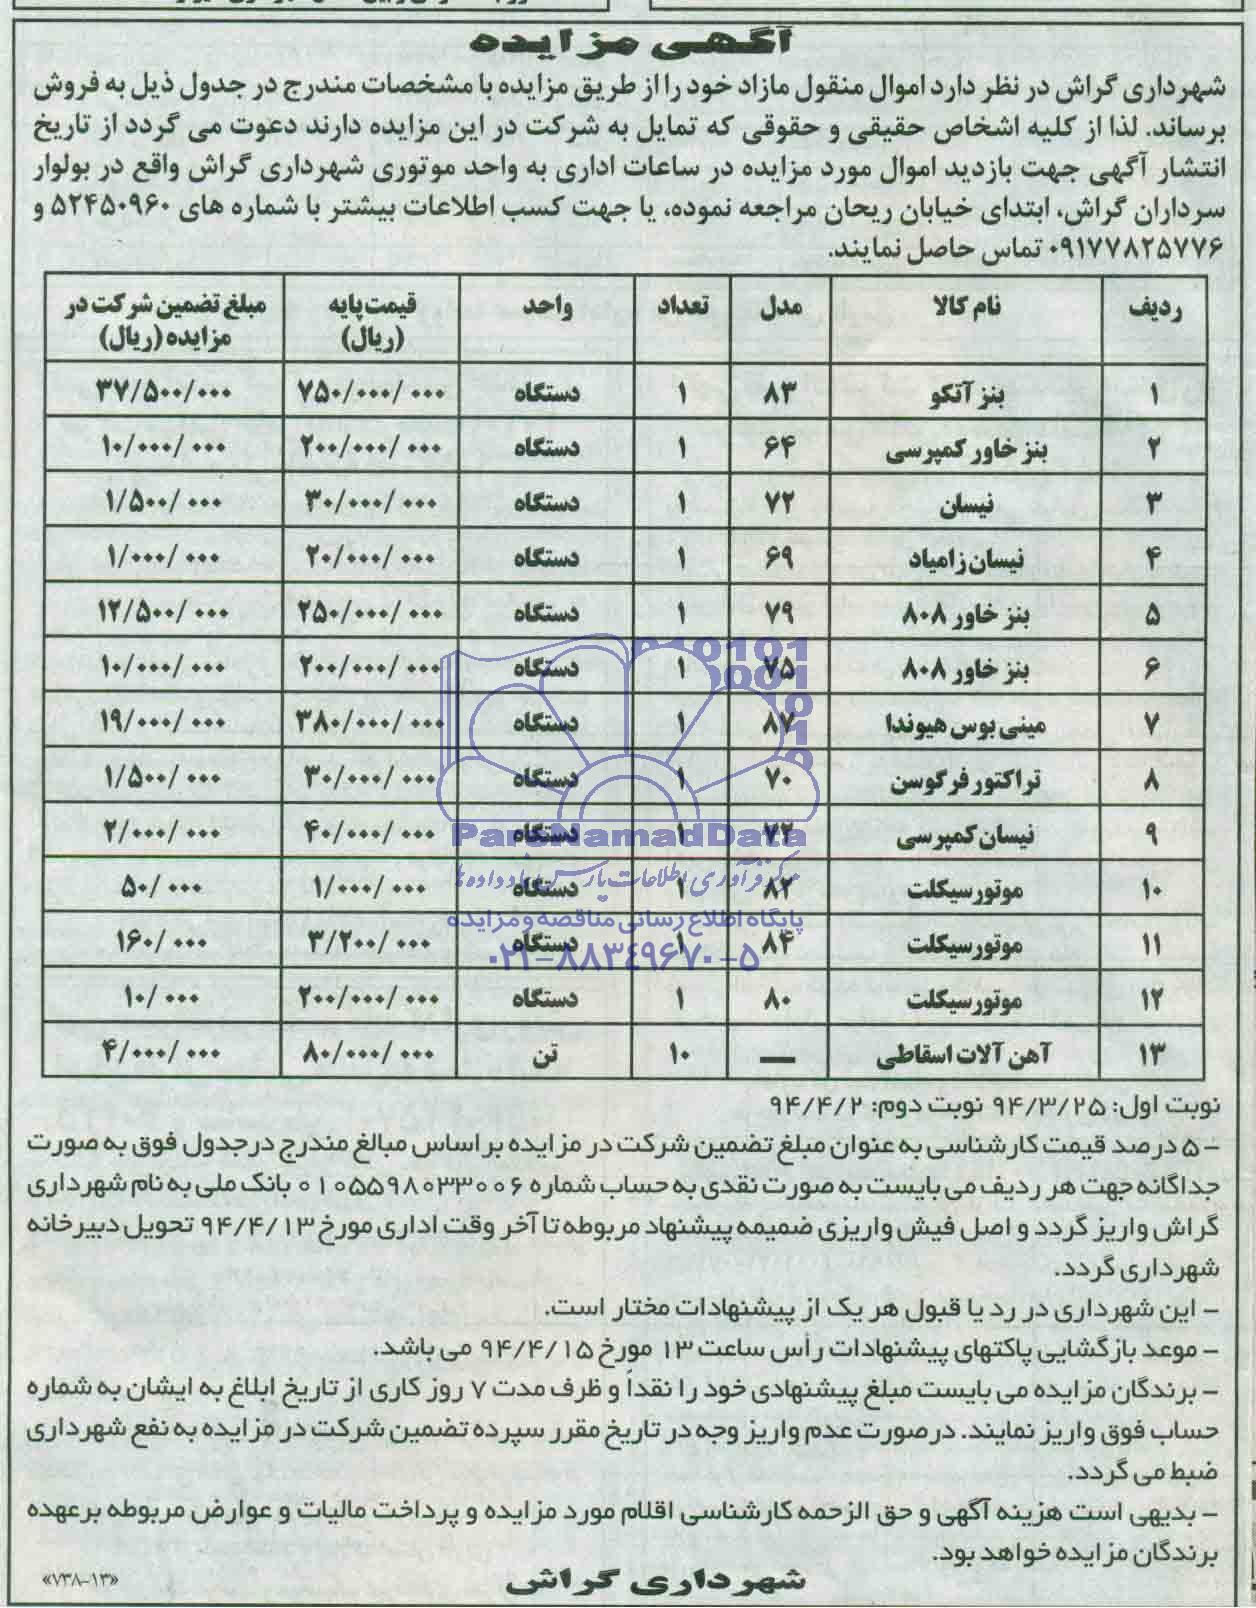 آگهی مزایده
شهرداری گراش در نظر دارد اموال منقول مازاد خود را از طریق مزایده با مشخصات مندرج در جدول ذیل به فروش
برساند. لذا از کلیه اشخاص حقیقی و حقوقی که تمایل به شرکت در این مزایده دارند دعوت می گردد از تاریخ
انتشار آگهی جهت بازدید اموال مورد مزایده در ساعات اداری به واحد موتوری شهرداری گراش واقع در بولوار
سرداران گراش، ابتدای خیابان ریحان مراجعه نموده، یا جهت کسب اطلاعات بیشتر با شماره های ۵۲۴۵۰۹۶۰ و
۰۹۱۷۷۸۲۵۷۷۶ تماس حاصل نمایند.
ردیف نام کالا مدل تعداد واحد قیمت پایه (ریال) مبلغ تضمین شرکت در مزایده (ریال)
۱ بنز آتکو ۸۳ ۱ دستگاه ۷۵۰/۰۰۰/۰۰۰ ۳۷/۵۰۰/۰۰۰
۲ بنز خاور کمپرسی ۶۴ ۱ دستگاه ۲۰۰/۰۰۰/۰۰۰ ۱۰/۰۰۰/۰۰۰
۳ نیسان ۷۲ ۱ دستگاه ۳۰/۰۰۰/۰۰۰ ۱/۵۰۰/۰۰۰
۴ نیسان زامیاد ۶۹ ۱ دستگاه ۲۰/۰۰۰/۰۰۰ ۱/۰۰۰/۰۰۰
۵ بنز خاور ۸۰۸ ۷۹ ۱ دستگاه ۲۵۰/۰۰۰/۰۰۰ ۱۲/۵۰۰/۰۰۰
۶ بنز خاور ۸۰۸ ۷۵ ۱ دستگاه ۲۰۰/۰۰۰/۰۰۰ ۱۰/۰۰۰/۰۰۰
۷ مینی بوس هیوندا ۸۷ ۱ دستگاه ۳۸۰/۰۰۰/۰۰۰ ۱۹/۰۰۰/۰۰۰
۸ تراکتور فرگوسن ۷۰ ۱ دستگاه ۳۰/۰۰۰/۰۰۰ ۱/۵۰۰/۰۰۰
۹ نیسان کمپرسی ۷۲ ۱ دستگاه ۴۰/۰۰۰/۰۰۰ ۲/۰۰۰/۰۰۰
۱۰ موتورسیکلت ۸۲ ۱ دستگاه ۱/۰۰۰/۰۰۰ ۵۰/۰۰۰
۱۱ موتورسیکلت ۸۴ ۱ دستگاه ۳/۲۰۰/۰۰۰ ۱۶۰/۰۰۰
۱۲ موتورسیکلت ۸۰ ۱ دستگاه ۲۰۰/۰۰۰/۰۰۰ ۱۰/۰۰۰
۱۳ آهن آلات اسقاطی — ۱۰ تن ۸۰/۰۰۰/۰۰۰ ۴/۰۰۰/۰۰۰
ParsNamadData
مرکز فرآوری اطلاعات پارس نماد داده ها
پایگاه اطلاع رسانی مناقصه و مزایده
۰۲۱-۸۸۳۴۹۶۷۰-۵
نوبت اول: ۹۴/۳/۲۵ نوبت دوم: ۹۴/۴/۲
- ۵ درصد قیمت کارشناسی به عنوان مبلغ تضمین شرکت در مزایده براساس مبالغ مندرج درجدول فوق به صورت
جداگانه جهت هر ردیف می بایست به صورت نقدی به حساب شماره ۰۱۰۵۵۹۸۰۳۳۰۰۶ بانک ملی به نام شهرداری
گراش واریز گردد و اصل فیش واریزی ضمیمه پیشنهاد مربوطه تا آخر وقت اداری مورخ ۹۴/۴/۱۳ تحویل دبیرخانه
شهرداری گردد.
- این شهرداری در رد یا قبول هر یک از پیشنهادات مختار است.
- موعد بازگشایی پاکتهای پیشنهادات رأس ساعت ۱۳ مورخ ۹۴/۴/۱۵ می باشد.
- برندگان مزایده می بایست مبلغ پیشنهادی خود را نقداً و ظرف مدت ۷ روز کاری از تاریخ ابلاغ به ایشان به شماره
حساب فوق واریز نمایند. درصورت عدم واریز وجه در تاریخ مقرر سپرده تضمین شرکت در مزایده به نفع شهرداری
ضبط می گردد.
- بدیهی است هزینه آگهی و حق الزحمه کارشناسی اقلام مورد مزایده و پرداخت مالیات و عوارض مربوطه برعهده
برندگان مزایده خواهد بود.
شهرداری گراش
«۷۳۸-۱۳»